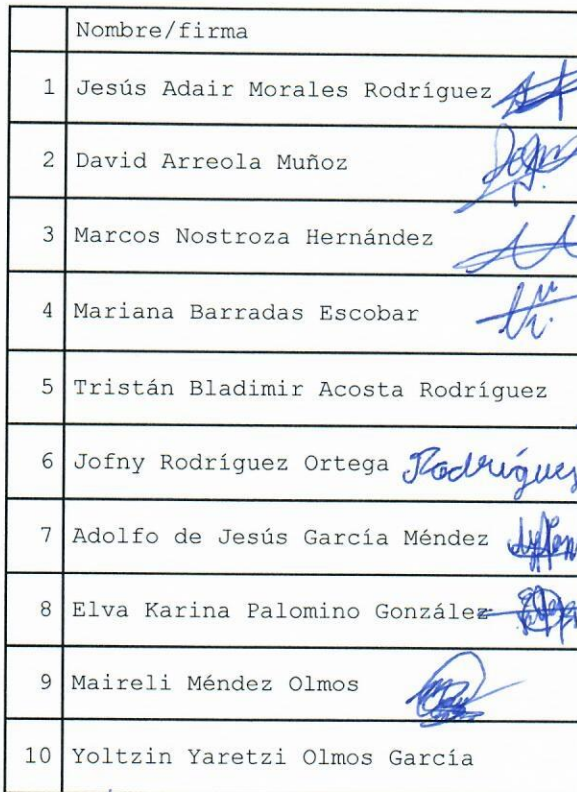 Nombre/firma
1 Jesús Adair Morales Rodríguez
2 David Arreola Muñoz
3 Marcos Nostroza Hernández
4 Mariana Barradas Escobar
5 Tristán Bladimir Acosta Rodríguez
6 Jofny Rodríguez Ortega Rodríguez
7 Adolfo de Jesús García Méndez
8 Elva Karina Palomino González
9 Maireli Méndez Olmos
10 Yoltzin Yaretzi Olmos García